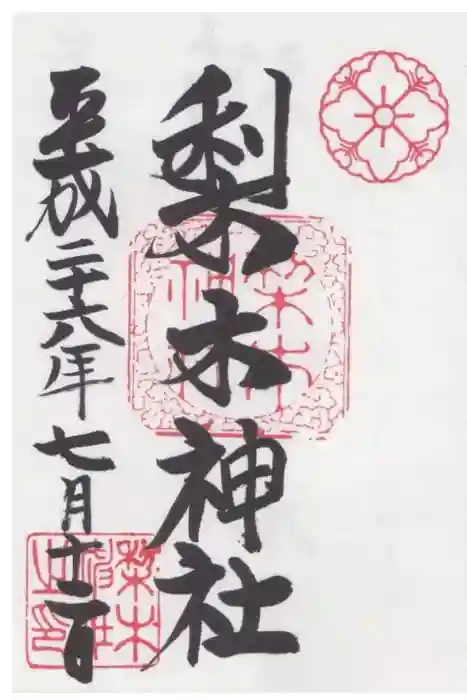 梨木神社
平成二十六年七月十二日
梨木
神社
梨木
神社
之印